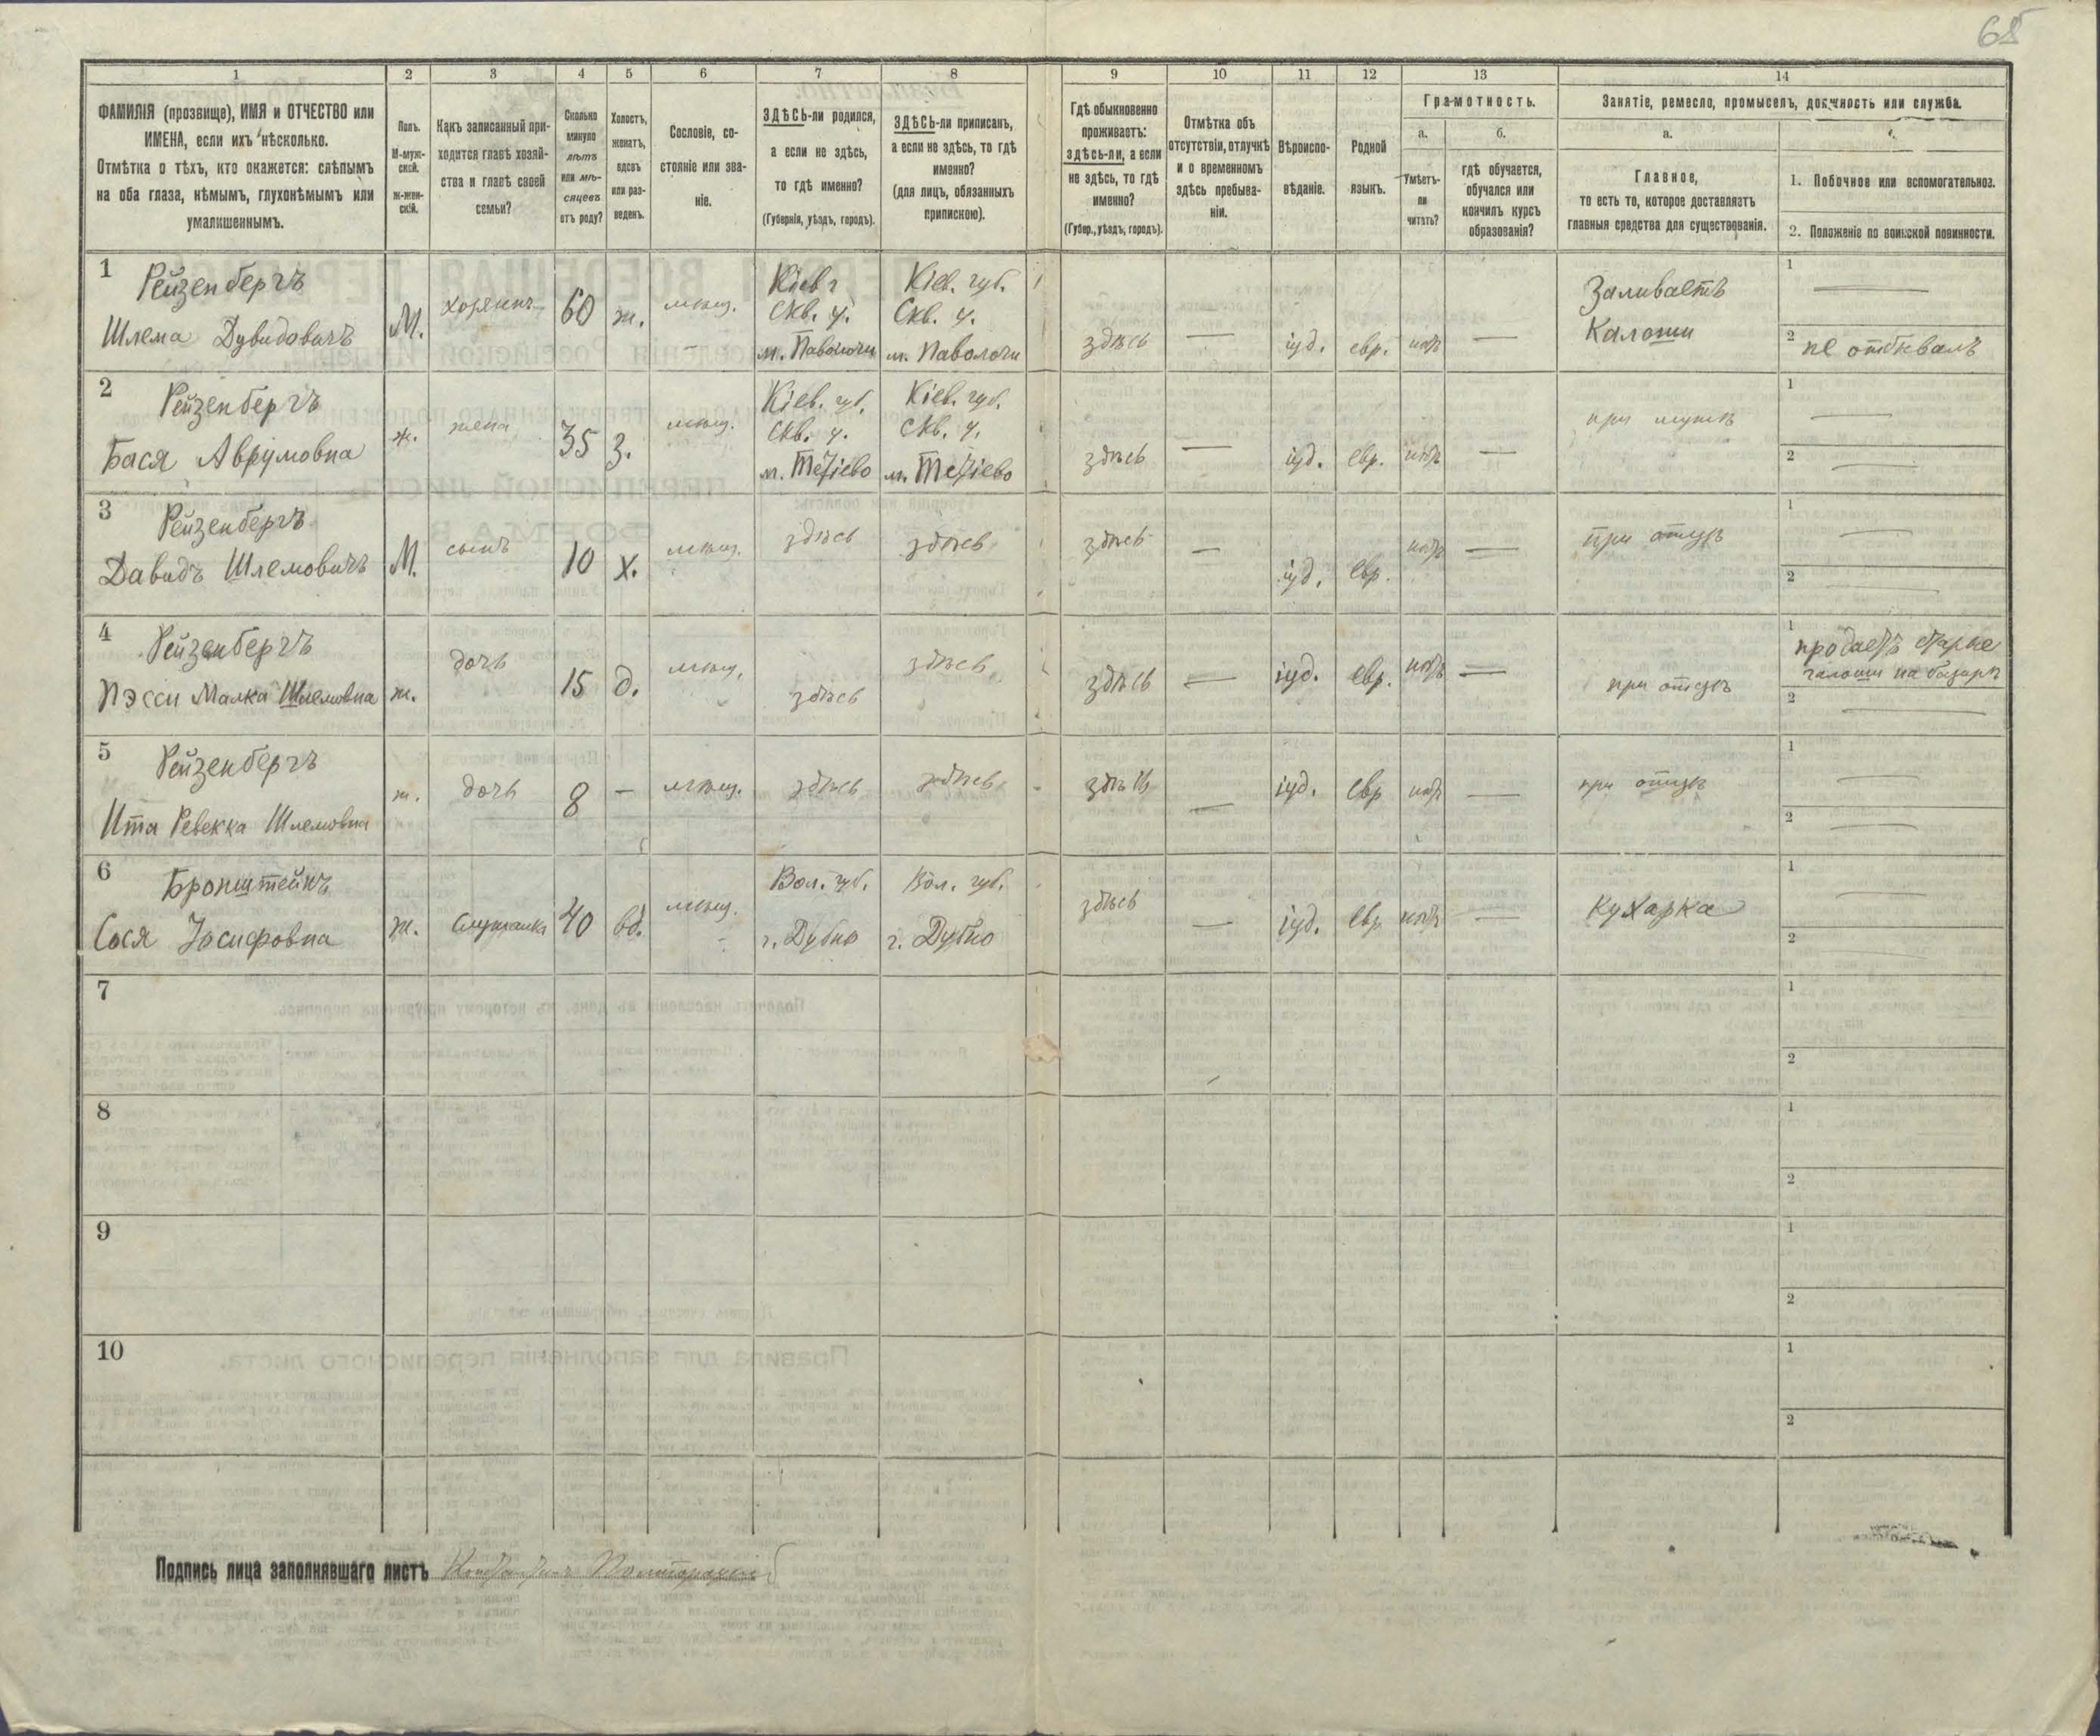 65
1 2 3 4 5 6 7 8 9 10 11 12 13 14
ФАМИЛІЯ (прозвище), ИМЯ и ОТЧЕСТВО или
ИМЕНА, если ихъ нѣсколько.
Отмѣтка о тѣхъ, кто окажется: слѣпымъ
на оба глаза, нѣмымъ, глухонѣмымъ или
умалишеннымъ.
Полъ.
М-муж-
ской.
ж-жен-
скій.
Какъ записанный при-
ходится главѣ хозяй-
ства и главѣ своей
семьи?
Сколько
минуло
лѣтъ
или мѣ-
сяцевъ
отъ роду?
Холостъ,
женатъ,
вдовъ
или раз-
веденъ.
Сословіе, со-
стояніе или зва-
ніе.
ЗДѢСЬ-ли родился,
а если не здѣсь,
то гдѣ именно?
(Губернія, уѣздъ, городъ).
ЗДѢСЬ-ли приписанъ,
а если не здѣсь, то гдѣ
именно?
(для лицъ, обязанныхъ
припискою).
Гдѣ обыкновенно
проживаетъ:
здѣсь-ли, а если
не здѣсь, то гдѣ
именно?
(Губер., уѣздъ, городъ).
Отмѣтка объ
отсутствіи, отлучкѣ
и о временномъ
здѣсь пребыва-
ніи.
Вѣроиспо-
вѣданіе.
Родной
языкъ.
Грамотность.
а.
Умѣетъ-
ли
читать?
б.
гдѣ обучается,
обучался или
кончилъ курсъ
образованія?
Занятіе, ремесло, промыселъ, должность или служба.
а.
Главное,
то есть то, которое доставляетъ
главныя средства для существованія.
1. Побочное или вспомогательное.
2. Положеніе по воинской повинности.
1 Рейзенбергъ
Шлема Дувидовичъ
М. хозяинъ 60 ж. мѣщ.
Кіев г
Скв. у.
м. Паволочи
Кіев. губ.
Скв. у.
м. Паволочи
здѣсь — іуд. евр. нѣтъ —
Заливаетъ
Калоши
1 —
2 не отбывалъ
2 Рейзенбергъ
Бася Аврумовна
ж. жена 35 З. мѣщ.
Кіев. губ.
Скв. у.
м. Тетіево
Кіев. губ.
Скв. у.
м. Тетіево
здѣсь — іуд. евр. нѣтъ —
при мужѣ
1 —
2 —
3 Рейзенбергъ
Давидъ Шлемовичъ
М. сынъ 10 х. мѣщ. здѣсь здѣсь здѣсь — іуд. евр. нѣтъ — при отцѣ
1 —
2 —
4 Рейзенбергъ
Пэсси Малка Шлемовна
ж. дочь 15 д. мѣщ. здѣсь здѣсь здѣсь — іуд. евр. нѣтъ — при отцѣ
1 продаетъ старые
галоши на базарѣ
2 —
5 Рейзенбергъ
Ита Ревекка Шлемовна
ж. дочь 8 — мѣщ. здѣсь здѣсь здѣсь — іуд. евр нѣтъ — при отцѣ
1 —
2 —
6 Бронштейнъ
Сося Іосифовна
ж. служанка 40 вд. мѣщ.
Вол. губ.
г. Дубно
Вол. губ.
г. Дубно
здѣсь — іуд. евр. нѣтъ —
Кухарка
1 —
2 —
7
1
2
8
1
2
9
1
2
10
1
2
Подпись лица заполнявшаго листъ